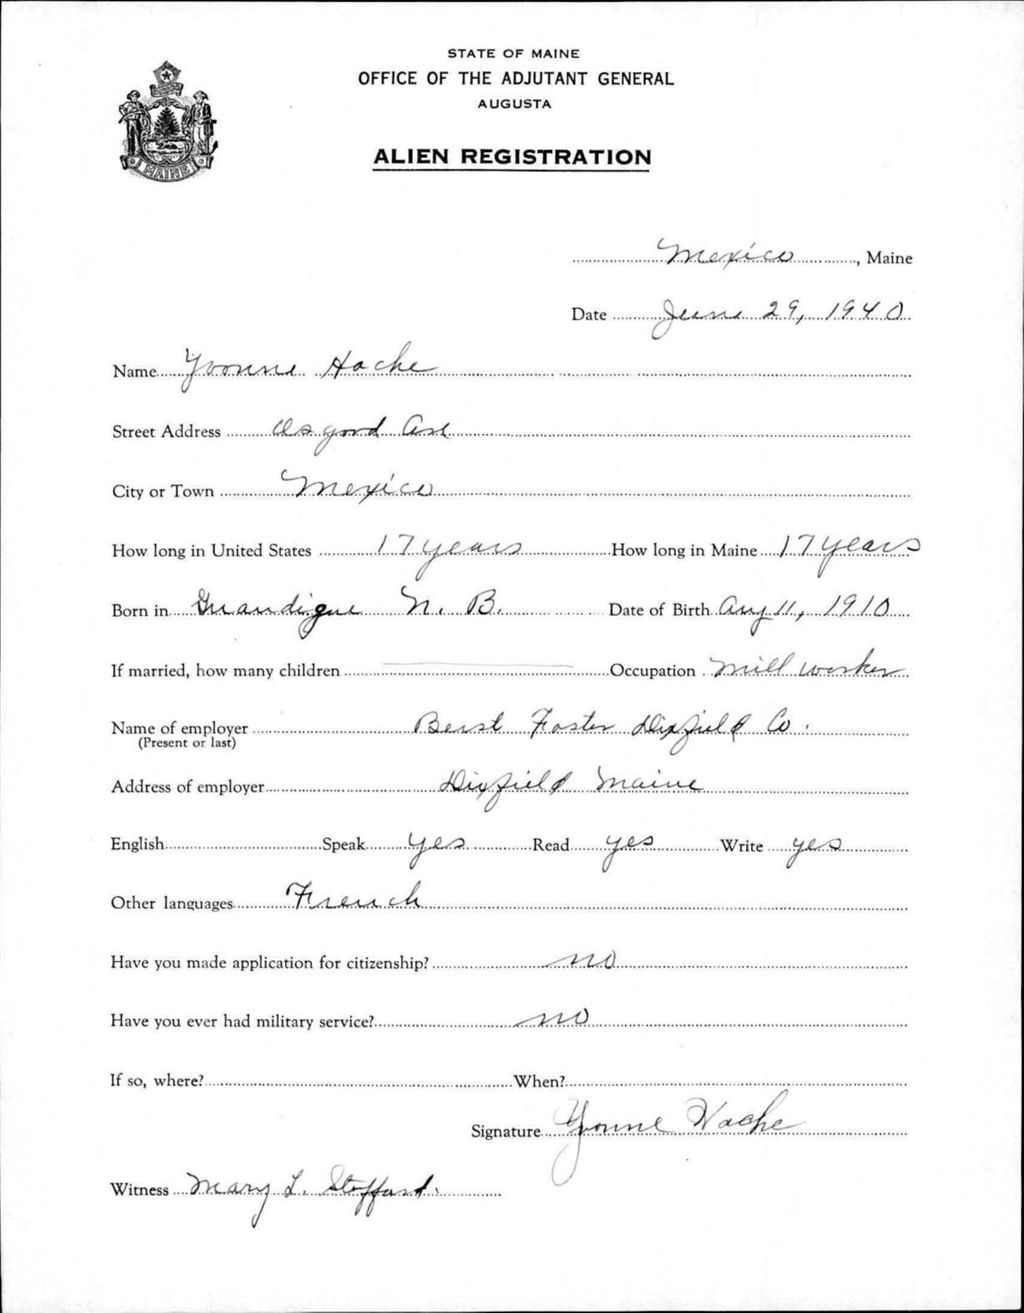 STATE OF MAINE
OFFICE OF THE ADJUTANT GENERAL
AUGUSTA
ALIEN REGISTRATION
MAINE
Mexico, Maine
Date June 29, 1940
Name Yvonne Hache
Street Address Osgood Ave
City or Town Mexico
How long in United States 17 years How long in Maine 17 years
Born in N. B. Date of Birth Aug 11, 1910
If married, how many children Occupation Mill worker
Name of employer Berst Foster Dixfield Co.
(Present or last)
Address of employer Dixfield Maine
English Speak yes Read yes Write yes
Other languages French
Have you made application for citizenship? no
Have you ever had military service? no
If so, where? When?
Signature Yvonne Hache
Witness Mary L.